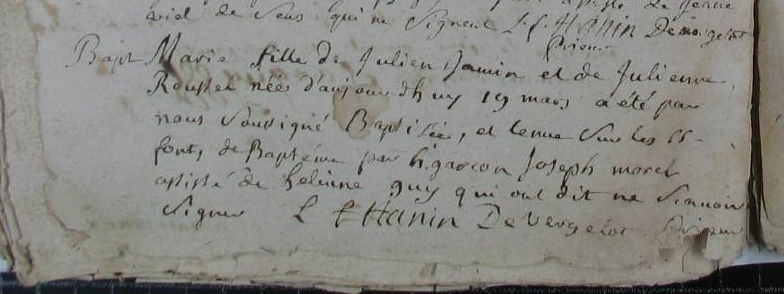 viel de Sens qui ne Signent L. f. Hanin De
Prieur
Bapt Marie fille de Julien Jamin et de Julienne
Roussel née d'aujourdhuy 19 mars a été par
nous Soussigné Baptisée, et tenue Sur les SS-
fonts de Baptéme par h. garcon Joseph morel
assisté de helinne guy qui ont dit ne Scavoir
Signer L f Hanin De Vergelot Prieur